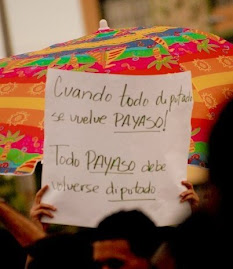 Cuando todo diputado
se vuelve PAYASO!
Todo PAYASO debe
volverse diputado